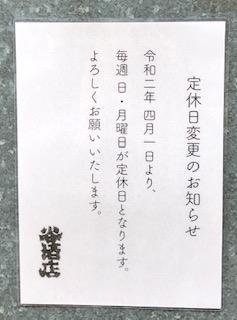 定休日変更のお知らせ
令和二年 四月一日より、
毎週 日・月曜日が定休日となります。
よろしくお願いいたします。